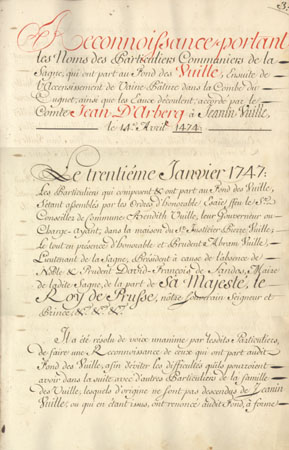 Reconnoissance portant
les Noms des Particuliers Communiers de la
Sagne, qui ont part au Fond des Vuille, Ensuite de
l'Accensissement de Vaine Pâture dans la Combe du
Cuguet, ainsi que les Eaux découlent, accordé par le
Comte Jean D'Arberg à Jeanin Vuille,
le 14e Avril 1474:
Le trentiéme Janvier 1747:
Les Particuliers qui composent & ont part au Fond des Vuille,
s'étant assemblés par les Ordres d'honorable Esaïe, ffeu le Sr
Conseiller de Commune Abendith Vuille, leur Gouverneur ou
Charge-ayant, dans la maison du Sr Justicier Pierre Vuille,
le tout en présence d'honorable et Prudent Abram Vuille,
Lieutenant de la Sagne, Président à cause de l'absence de
Noble & Prudent David-François de Sandoz, Maire
de ladite Sagne, de la part de Sa Majesté, le
Roy de Prusse, nôtre Souverain Seigneur et
Prince, &c. &c. &c.
Il a été résolu de voix unanime par lesdits Particuliers,
de faire une Reconnoissance de ceux qui ont part audit
Fond des Vuille, afin d'éviter les difficultés qu'ils pouroient
avoir dans la suite avec d'autres Particuliers de la famille
des Vuille, lesquels d'origine ne sont pas descendus de Jeanin
Vuille, ou qui en étant issus, ont renoncé audit Fond, à forme